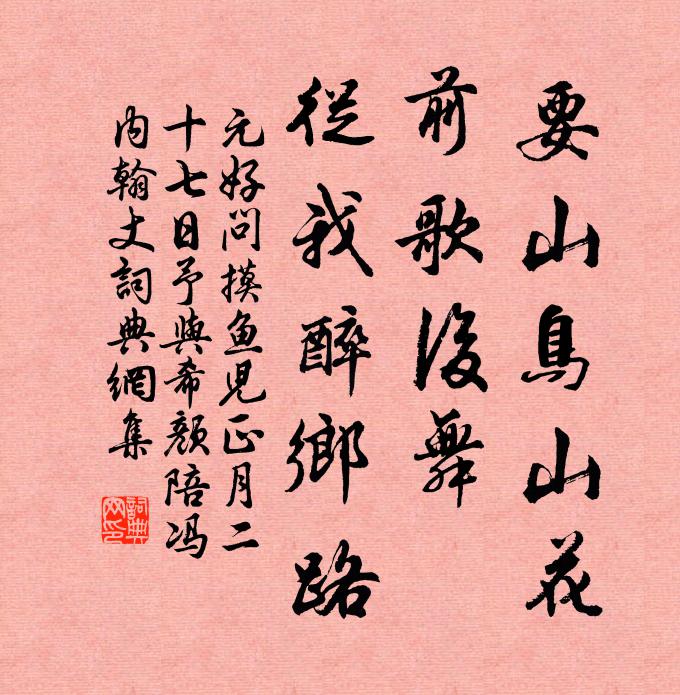 要山鳥山花
前歌後舞
從我醉鄉路
元好問摸魚兒正月二
十七日予與希顏陪馮
內翰丈詞典網集
詞典
网印